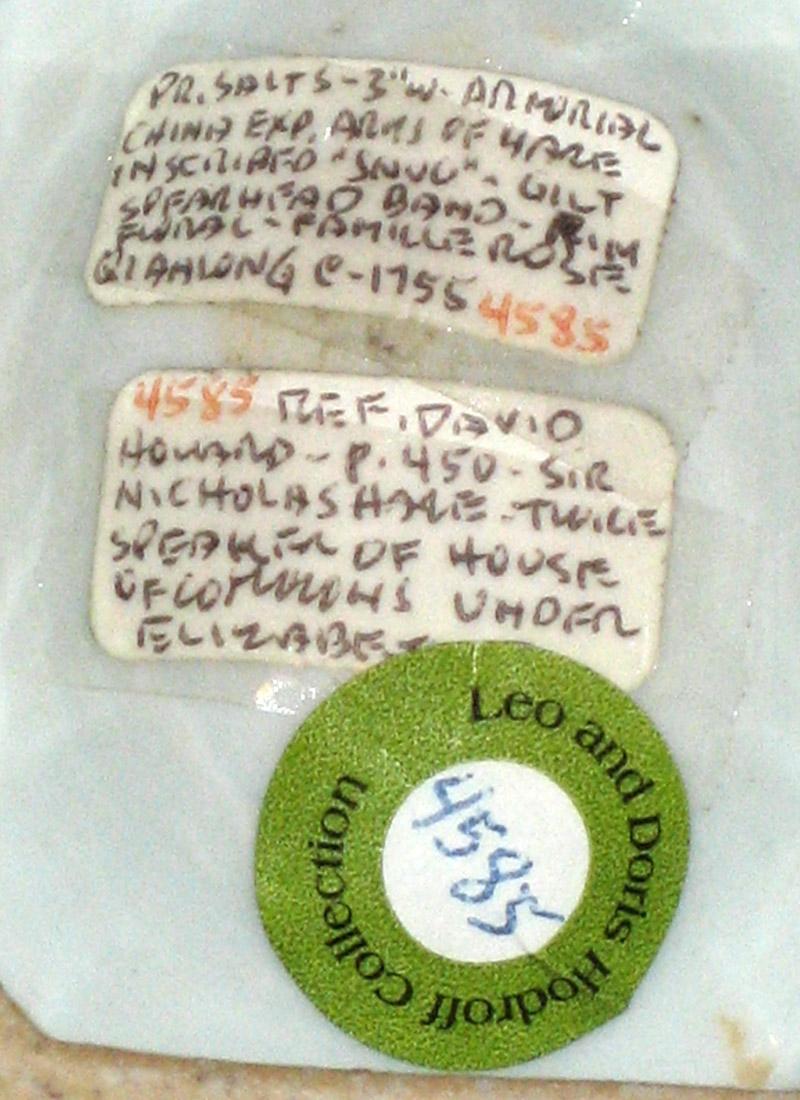 PR. SALTS - 3" W. ARMORIAL
CHINA EXP. ARMS OF HARE
INSCRIBED "SNUG" - GILT
SPEARHEAD BAND - RIM
FLORAL - FAMILLE ROSE
QIANLONG C-1755 4585
4585 REF. DAVID
HOWARD - P. 450 - SIR
NICHOLAS HARE - TWICE
SPEAKER OF HOUSE
OF COMMONS UNDER
ELIZABET
Leo and Doris Hodroff Collection
4585